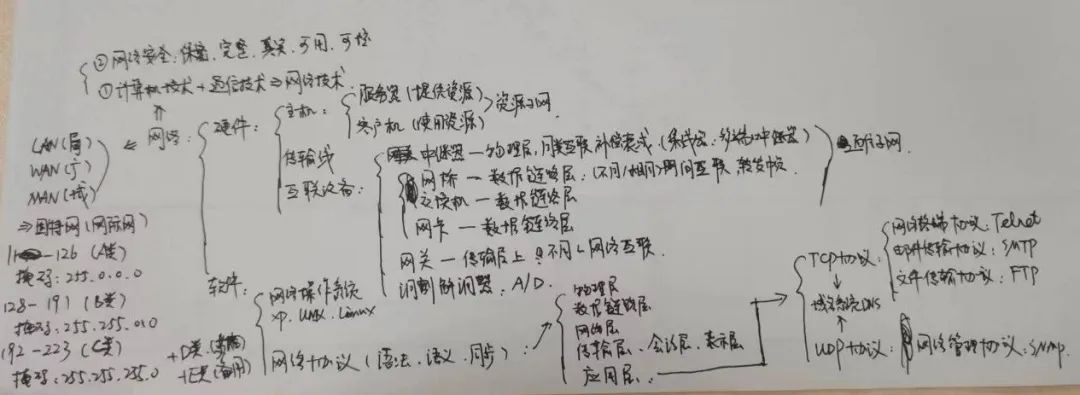 ② 网络安全:保密、完整、真实、可用、可控
① 计算机技术 + 通信技术 ⇒ 网络技术
网络:
LAN(局)
WAN(广)
MAN(域)
⇒因特网(网际网)
1-126 (A类)
掩码: 255.0.0.0
128-191 (B类)
掩码: 255.255.0.0
192-223 (C类)
掩码: 255.255.255.0
+D类
+E类(备用)
硬件:
主机:
服务器(提供资源)
客户机(使用资源)
资源子网
传输线
互联设备:
中继器—物理层,同类互联 补偿衰减(集线器:多端口中继器)
网桥—数据链路层:(不同/相同)局间互联,转发中农
交换机—数据链路层
网卡—数据链路层
网关—传输层上 不同 网络互联.
调制解调器:A/D.
通信子网.
软件:
网络操作系统
xp、UNIX、Linux
网络协议(语法、语义、同步):
物理层
数据链路层
网络层
传输层、会话层、表示层
应用层:
TCP协议:
网络终端协议:Telnet
邮件传输协议:SMTP
文件传输协议:FTP
域名系统DNS
UDP协议:
网络管理协议:SNMP.